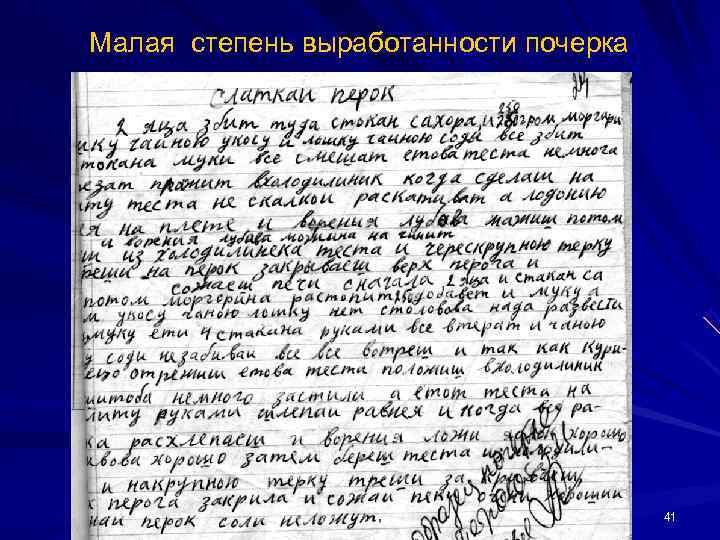 Малая степень выработанности почерка
24
Слаткаи перок
250
2 яца збит туда стокан сахора, грром моргари
ику чаиною укосу и лошку чаиною соды все збит
токана муки все смешат етова теста немнога
езат пражит вхолодилиник когда сделаш на
иту теста не скалкои раскативат а лодонию
ея на плете и ворения лубава мажиш потом
и ворения лубава можина на чинит
ш из холодилинека теста и черескрупною терку
реши на перок закрываеш верх перога и
сожаеш печи сначала 2 яца и стакан са
потом моргорина растопит подобавет и муку а
м укосу чаною лошку нет столовова нада развести
муку ети 4 стакана руками все втерат и чаною
у соди незабиваи все все вотреш и так как кури
ею отрежиш етова теста положиш вхолодилиник
штоба немного застили а етот теста на
литу руками шлепаи равнея и когда все ра-
ка расхлепаеш и ворения ложи хорошо
квова хорошо затем береш теста
и накрупную терку треши
х перога закрила и сожаи пеки хорошии
наи перок соли неложут.
41